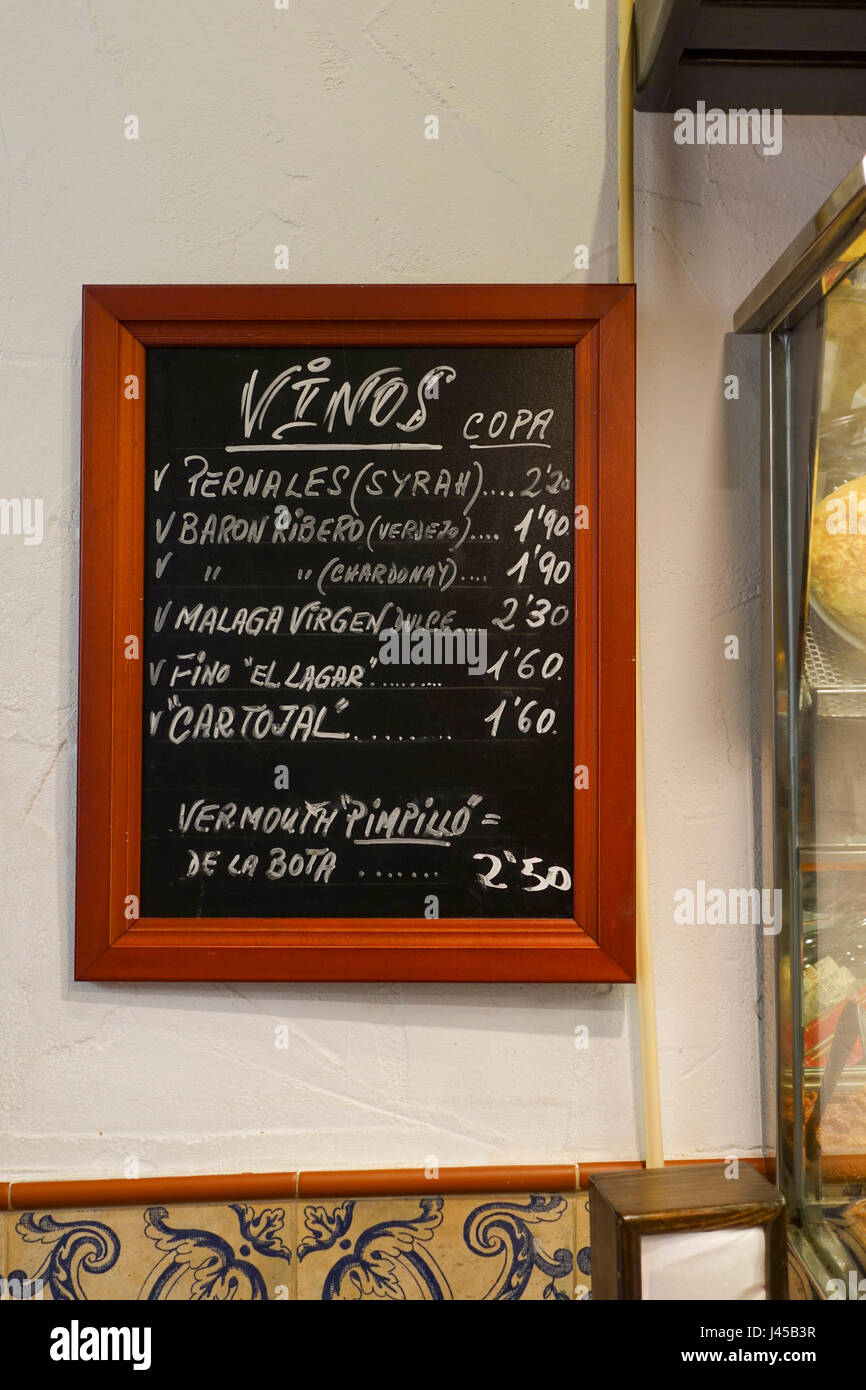 VINOS COPA
v PERNALES (SYRAH).... 2'20
v BARON RIBERO (VERDEJO).... 1'90
v " " (CHARDONAY).... 1'90
v MALAGA VIRGEN DULCE.... 2'30
v FINO "EL LAGAR"......... 1'60.
v "CARTOJAL"......... 1'60.
VERMOUTH "PIMPILLO" =
DE LA BOTA ........ 2'50
alamy stock photo
J45B3R
www.alamy.com